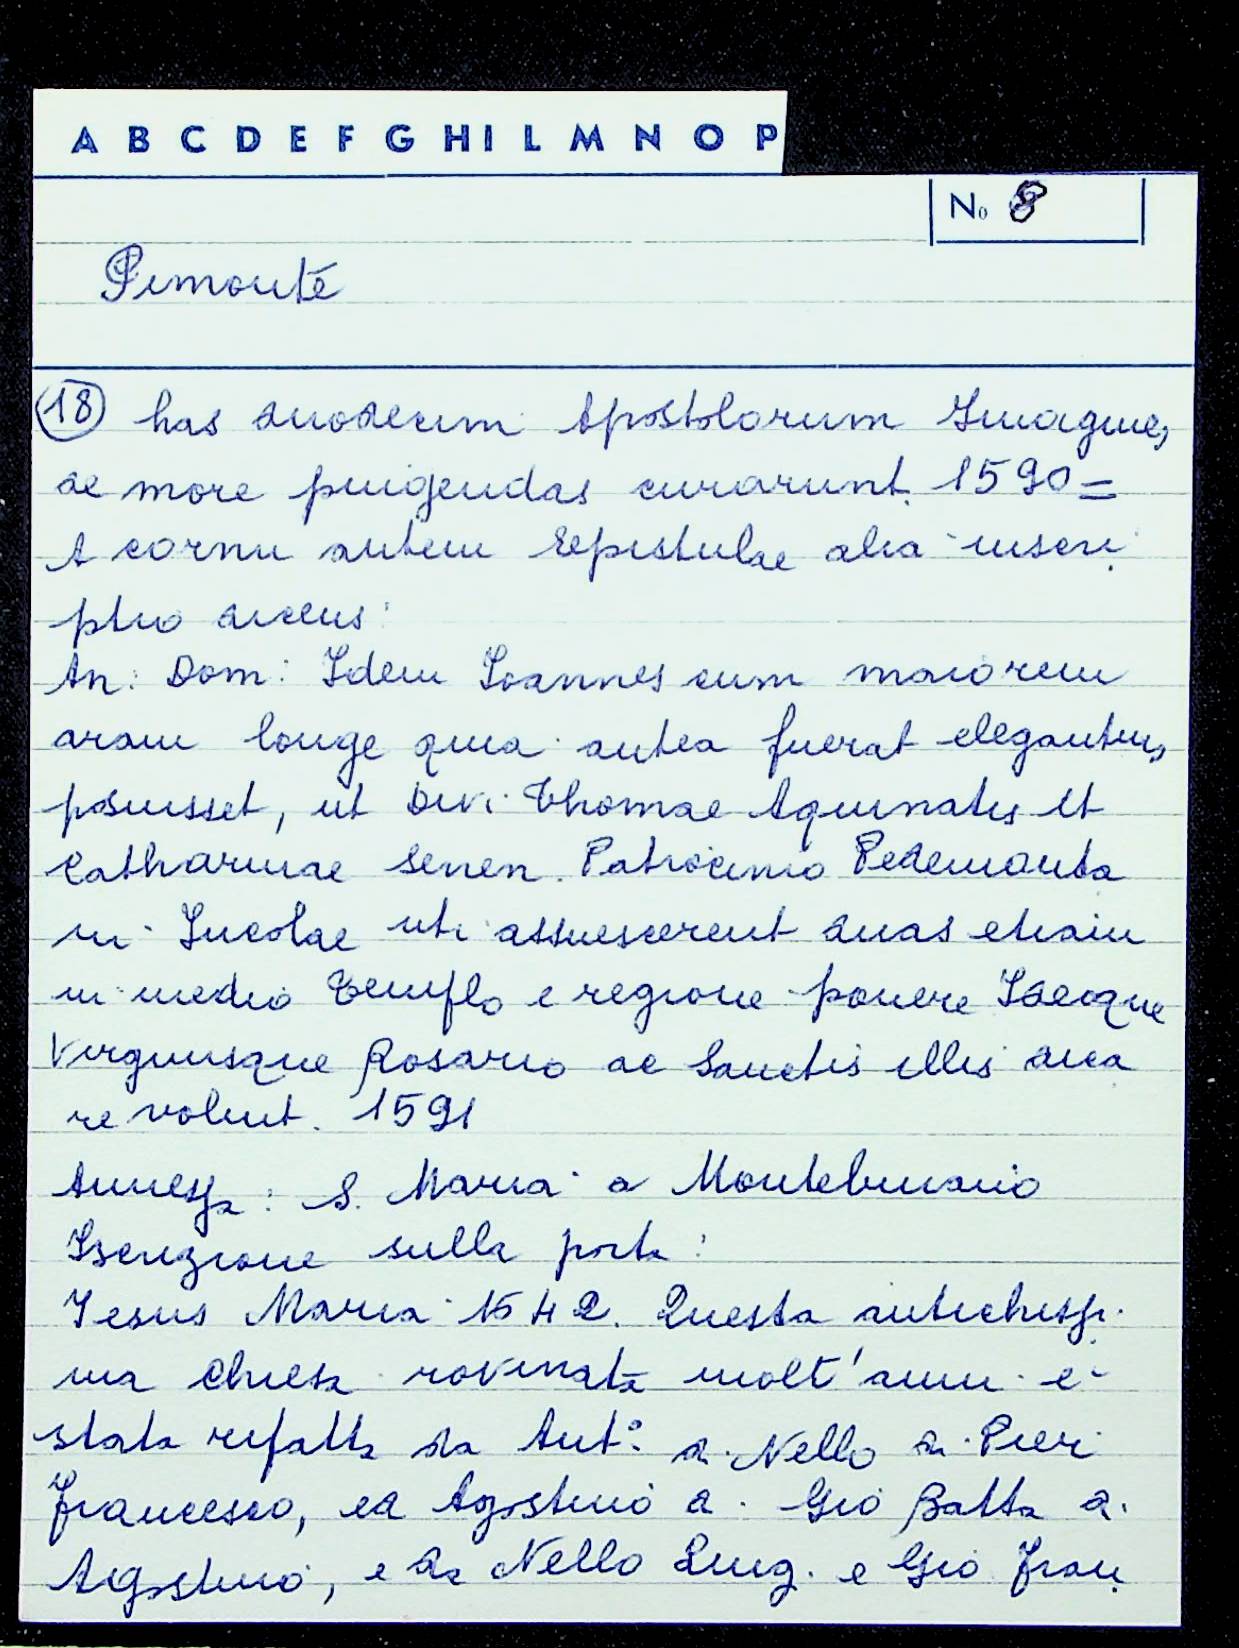 A B C D E F G H I L M N O P
No 8
Pimonte
18 has duodecim Apostolorum Imagines
de more pingendas curarunt. 1590=
A cornu autem Epistulae alia inscri
ptio dicens:
An: Dom: Idem Ioannes cum maiorem
aram longe qua antea fuerat elegantius
posuisset, ut Divi Thomae Aquinatis et
Catharinae Senen. Patrocinio Pedemonta
ni Incolae uti assuescerent duas etiam
in medio Templo e regione ponere
Virginisque Rosario ac Sanctis illis dica
re voluit. 1591
Annessa: S. Maria a
Iscrizione sulla porta:
Iesus Maria 1542. Questa antichissi
ma chiesa rovinata molt'anni e'
stata rifatta da Ant.o d. Nello di Pier
Francesco, ed Agostino d. Gio Batta d.
Agostino, e da Nello Luig. e Gio Fran